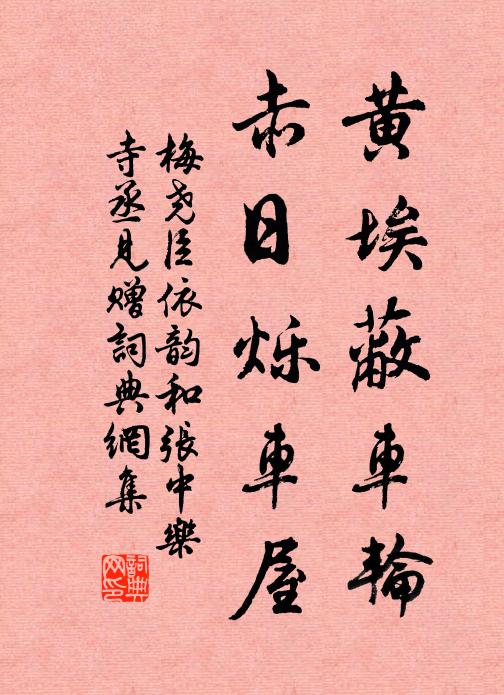 黄埃蔽車輪
赤日烁車屋
梅尧臣依韵和張中樂
寺丞見赠詞典網集
詞典网印